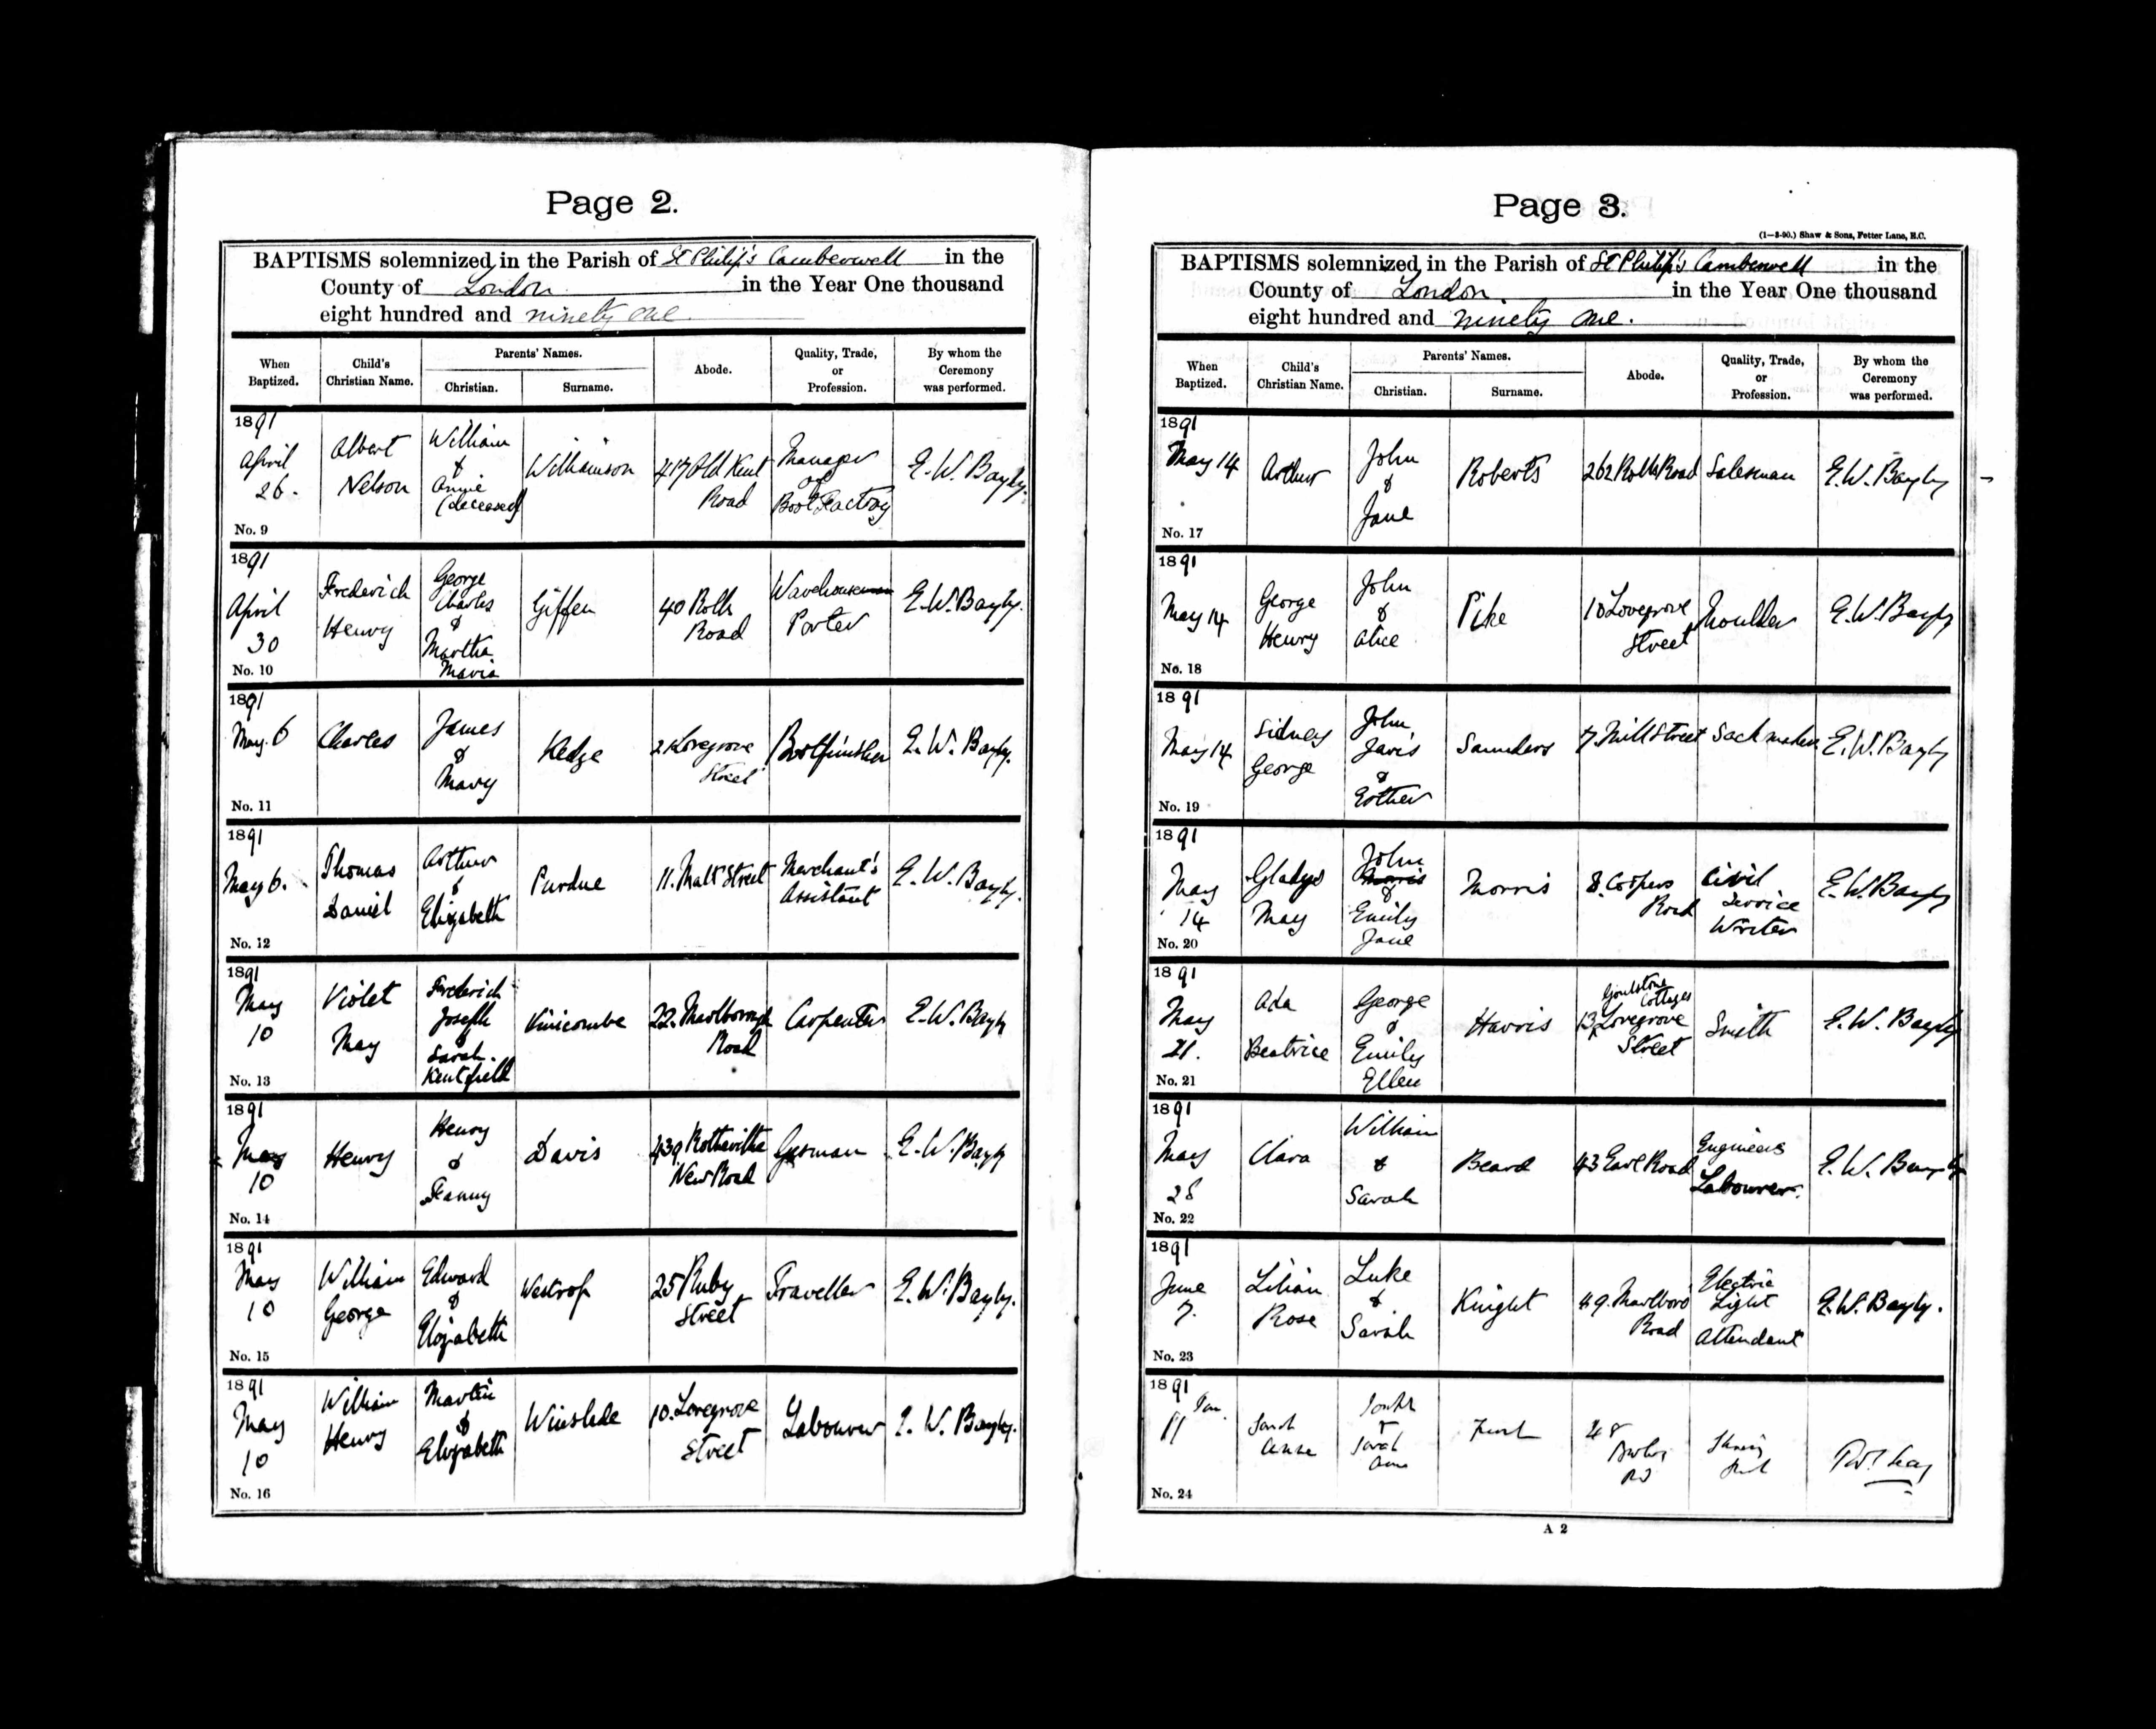 Page 2.
BAPTISMS solemnized in the Parish of St Philip's Camberwell in the
County of London in the Year One thousand
eight hundred and ninety one
When Baptized. Child's Christian Name. Parents' Names. Christian. Surname. Abode. Quality, Trade, or Profession. By whom the Ceremony was performed.
1891 April 26. Albert Nelson William & Annie (deceased) Williamson 417 Old Kent Road Manager of Boot Factory E. W. Bayly.
No. 9
1891 April 30 Frederick Henry George Charles & Martha Maria Giffen 40 Rolls Road Warehouse Porter E. W. Bayly.
No. 10
1891 May 6 Charles James & Mary Kedge Lovegrove Street Bootfinisher E. W. Bayly.
No. 11
1891 May 6. Thomas Daniel Arthur & Elizabeth Purdue 11. Malt Street Merchant's Assistant E. W. Bayly.
No. 12
1891 May 10 Violet May Frederick Joseph Sarah. Kentfield Vinicombe 22. Marlborough Road Carpenter E. W. Bayly
No. 13
1891 May 10 Henry Henry & Fanny Davis 439 Rotherhithe New Road E. W. Bayly
No. 14
1891 May 10 William George Edward & Elizabeth Westrop 25 Ruby Street Traveller E. W. Bayly.
No. 15
1891 May 10 William Henry Martin & Elizabeth Winslade 10. Lovegrove Street Labourer E. W. Bayly.
No. 16
Page 3.
(1—3-90.) Shaw & Sons, Fetter Lane, E.C.
BAPTISMS solemnized in the Parish of St Philip's Camberwell in the
County of London. in the Year One thousand
eight hundred and ninety one.
When Baptized. Child's Christian Name. Parents' Names. Christian. Surname. Abode. Quality, Trade, or Profession. By whom the Ceremony was performed.
1891 May 14 Arthur John & Jane Roberts 262 Rolls Road Salesman E. W. Bayly
No. 17
1891 May 14 George Henry John & Alice Pike 10 Lovegrove Street Moulder E. W. Bayly
No. 18
1891 May 14 Sidney George John Javis & Esther Saunders 7. Mill Street Sackmaker E. W. Bayly
No. 19
1891 May 14 Gladys May John Morris & Emily Jane Morris 8. Coopers Road Civil Service Writer E. W. Bayly
No. 20
1891 May 21. Ada Beatrice George & Emily Ellen Harris Goulstone Cottages 13 Lovegrove Street Smith E. W. Bayly
No. 21
1891 May 28 Clara William & Sarah Beard 43 Earl Road Engineers Labourer. E. W. Bayly
No. 22
1891 June 7. Lilian Rose Luke & Sarah Knight 49. Marlboro' Road Electric Light Attendant E. W. Bayly.
No. 23
1891 11 Sarah Sarah 48
No. 24
A 2